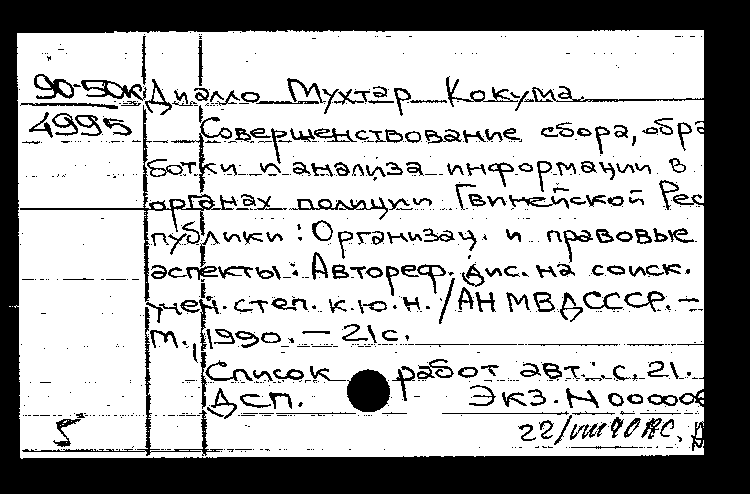 90-50к Диамо Мухтар Кокума.
4995 Совершенствование сбора, обра
ботки и анализа информации в
органах полиции Гвинейской Рес
публики: Организац. и правовые
аспекты: Автореф. дис. на соиск.
учен. степ. к.ю.н. / АН МВД СССР. —
М., 1990. — 21с.
Список работ авт.: с. 21.
ДСП. Экз. N 000006
5 22/VIII 90